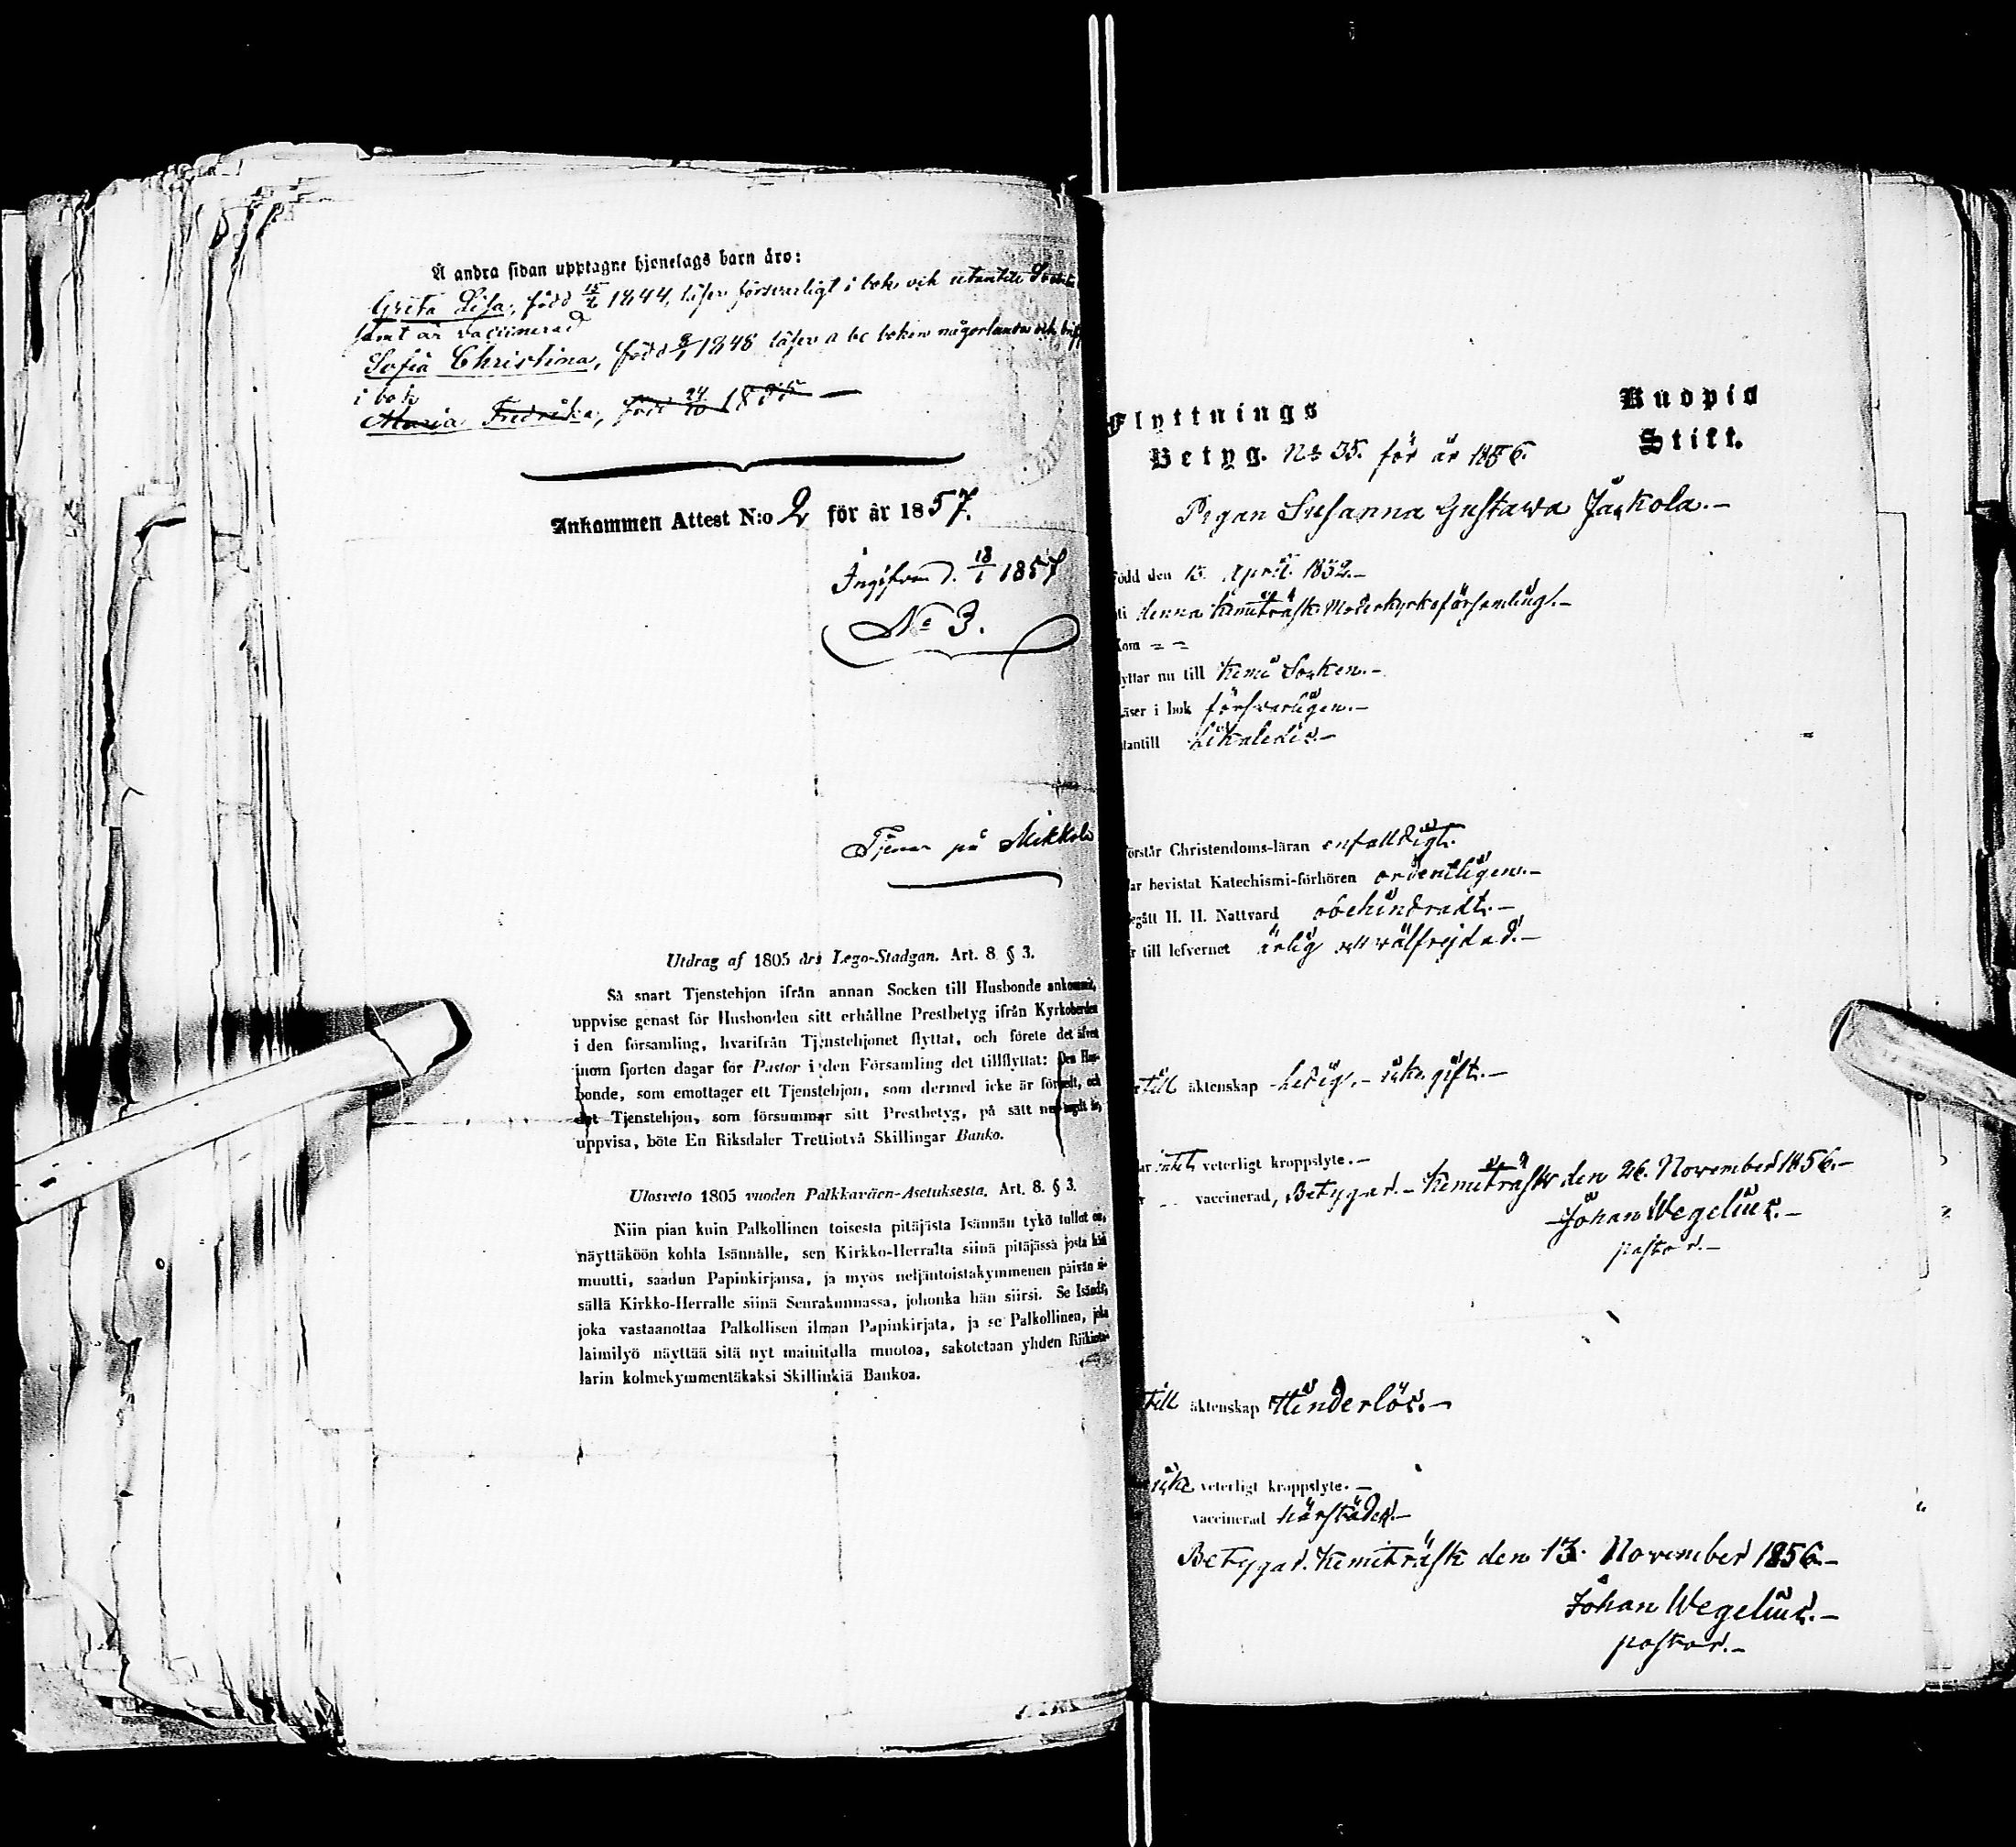 Å andra sidan upptagne hjonelags barn äro:
Greta Lisa, född 15/2 1844, läser försvarligt i bok och utantill
samt är vaccinerad
Sofia Christina, född 9/1 1848 läser a bc boken någorlunda och
i bok
Maria Fredrika, född 24/10 18
Ankommen Attest N:o 2 för år 1857.
Ingifven d. 18/1 1857
No 3.
Tjenar på Mikkola
Utdrag af 1805 års Lego-Stadgan. Art. 8 § 3.
Så snart Tjenstehjon ifrån annan Socken till Husbonde ankommit,
uppvise genast för Husbonden sitt erhållne Prestbetyg ifrån Kyrkoherden
i den församling, hvarifrån Tjenstehjonet flyttat, och förete det äfven
inom fjorton dagar för Pastor i den Församling det tillflyttat: Den Hus-
bonde, som emottager ett Tjenstehjon, som dermed icke är försedt, och
det Tjenstehjon, som försummar sitt Prestbetyg, på sätt nu sagdt är,
uppvisa, böte En Riksdaler Trettiotvå Skillingar Banko.
Ulosveto 1805 vuoden Palkkaväen-Asetuksesta. Art. 8. § 3.
Niin pian kuin Palkollinen toisesta pitäjästa Isännän tykö tullut on,
näyttäköön kohta Isännälle, sen Kirkko-Herralta siinä pitäjässä josta hän
muutti, saadun Papinkirjansa, ja myös neljäntoistakymmenen päivän si-
sällä Kirkko-Herralle siinä Seurakunnassa, johonka hän siirsi. Se Isändä,
joka vastaanottaa Palkollisen ilman Papinkirjata, ja se Palkollinen, joka
laimilyö näyttää sitä nyt mainitulla muotoa, sakotetaan yhden Riikinta-
larin kolmekymmentäkaksi Skillinkiä Bankoa.
Flyttnings Kuopio
Betyg. No 35. för år 1856. Stift.
Pigan Susanna Gustava Jaakola.-
född den 15. April. 1832.-
i denna Kemiträsk Moderkyrkoförsamling.-
kom = =
flyttar nu till Kemi Socken.-
läser i bok försvarligen.-
utantill likaledes.-
förstår Christendoms-läran enfaldigt.
har bevistat Katechismi-förhören ordentligen.-
begått H. H. Nattvard obehindradt.-
är till lefvernet ärlig och välfrejdad.-
till äktenskap ledig.- icke gift.-
har intet veterligt kroppslyte.-
vaccinerad, Betygar.- Kemiträsk den 26. November 1856.-
Johan Wegelius.-
pastor.-
till äktenskap Hinderlös.-
icke veterligt kroppslyte.-
vaccinerad härstädes.-
Betygar. Kemiträsk den 13. November 1856.-
Johan Wegelius.-
pastor.-